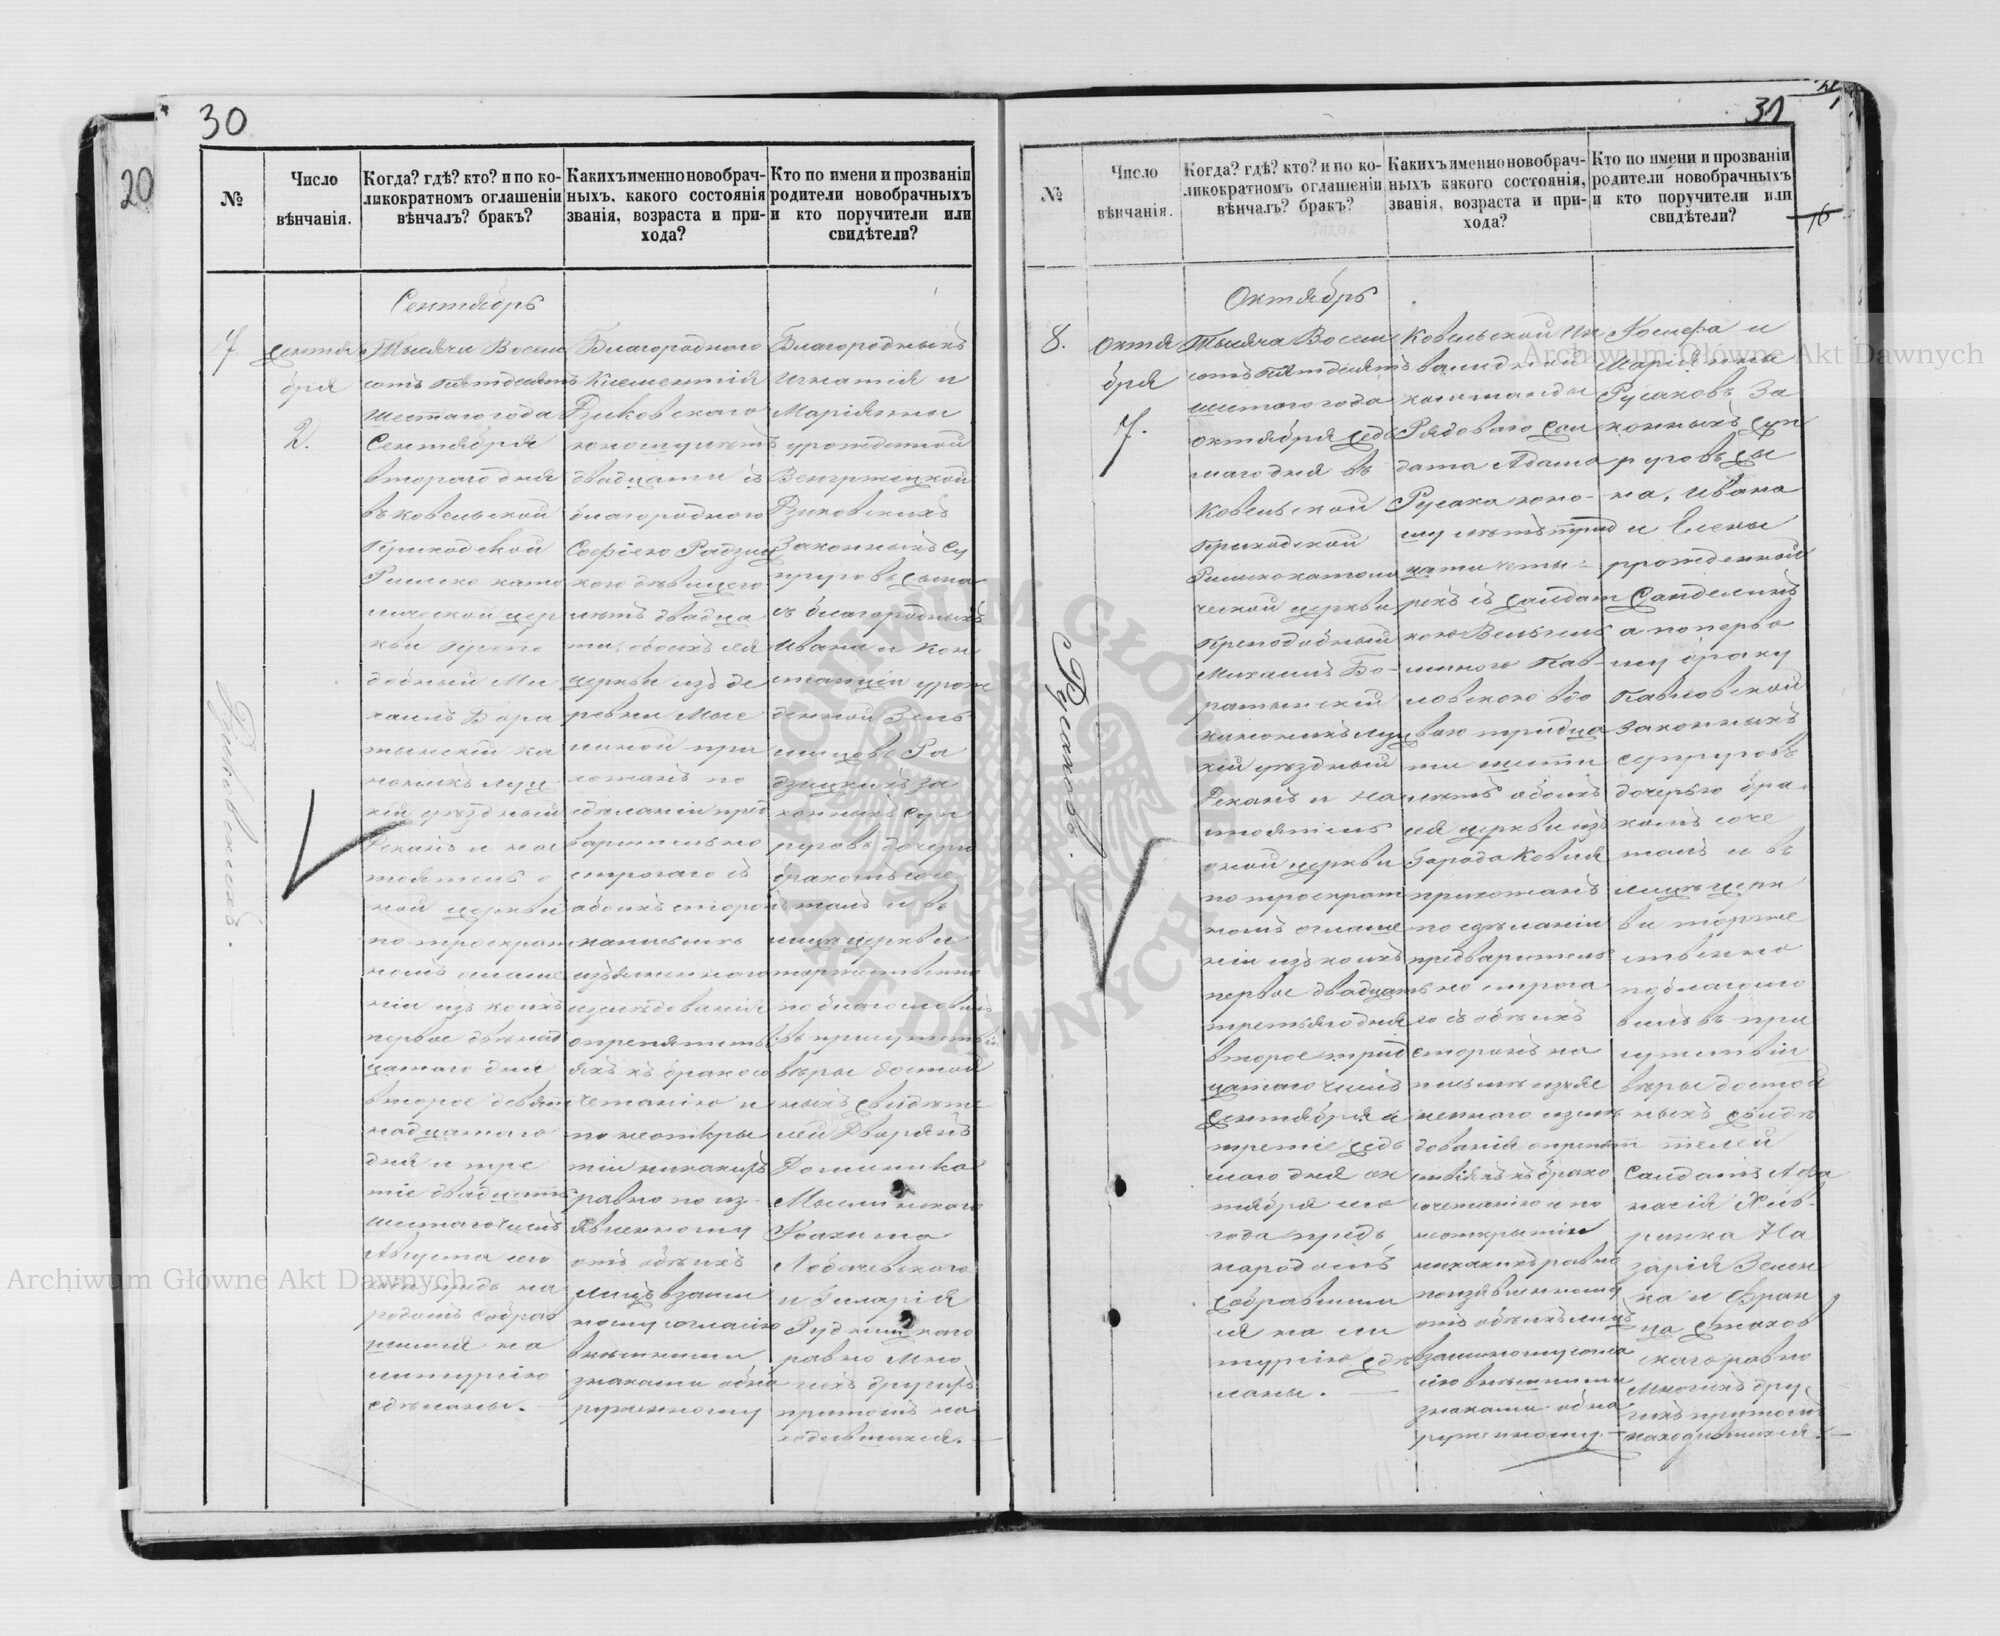 30
20
№
Число
вѣнчанія.
Когда? гдѣ? кто? и по ко-
ликократномъ оглашеніи
вѣнчалъ? бракъ?
Какихъ именно новобрач-
ныхъ, какого состоянія
званія, возраста и при-
хода?
Кто по имени и прозваніи
родители новобрачныхъ
и кто поручители или
свидѣтели?
Сентябрь
7
Сентя
бря
2.
Тысяча Восем
сотъ пятдесятъ
шестаго года
Сентября
втораго дня
въ Ковельской
Приходской
Римско като
лической цер
кви Препо
добный Ми
хаилъ Бора
тынскій ка
ноникъ Луц
кій уѣздный
Деканъ и нас
тоятель о
ной церкви
по троекрат
номъ оглаше
ніи изъ коихъ
первое двѣнад
цатаго дня
второе девят
надцатаго
дня и тре
тіе двадцать
шестаго числъ
Августа сего
года предъ на
родомъ собрав
шимся на
литургію
сдѣланы.
Благороднаго
Климентія
Рзиковскаго
юношу лѣтъ
двадцати съ
благородною
Софіею Радзиц
кою дѣвицею
лѣтъ двадца
ти, обоихъ сея
церкви изъ де
ревни Мыс
линой при
хожанъ по
сдѣланіи пред
варительно
строгаго съ
обоихъ сторонъ
написмѣ
изъясненнаго
изслѣдованія
опрепятстві
яхъ къ бракосо
четанію и
по неоткры
тіи никакихъ
равно по из-
явленному
отъ обѣихъ
лицъ взаим
ному согласію
внѣшними
знаками обна
руженному
Благородныхъ
Игнатія и
Маріянны
урожденной
Венгржецкой
Рзиковскихъ
Законныхъ су
пруговъ сына
съ благородныхъ
Ивана и Кон
станціи урож
денной Зель
Радзицкихъ за
конныхъ суп
руговъ дочерью
бракомъ соче
талъ и въ
лицѣ церкви
торжественно
поблагословилъ
въ присутствіи
вѣры достой
ныхъ свидѣте
лей Дворянъ
Доминика
Мыслинскаго
Іоахима
Лобачевскаго
и Гиларія
Рудницкаго
равно мно
гихъ другихъ
притомъ на
ходившихся.
Рзиковскихъ.
31
16
№
Число
вѣнчанія.
Когда? гдѣ? кто? и по ко-
ликократномъ оглашеніи
вѣнчалъ? бракъ?
Какихъ именно новобрач-
ныхъ какого состоянія,
званія, возраста и при-
хода?
Кто по имени и прозваніи
родители новобрачныхъ
и кто поручители или
свидѣтели?
Октябрь
8.
Октя
бря
7.
Тысяча Восем
сотъ пятдесятъ
шестаго года
октября седь
маго дня въ
Ковельской
Приходской
Римскокатоли
ческой церкви
Преподобный
Михаилъ Бо-
ратынскій
каноникъ Луц
кій уѣздный
Деканъ и на
стоятель
оной церкви
по троекрат
номъ оглаше
ніи изъ коихъ
первое двадцать
третьяго дня
второе трид
цатаго числъ
Сентября и
третіе седь
маго дня ок
тября сего
года предъ
народомъ
собравшим
ся на ли
тургію сдѣ
ланы.
Ковельской Ин
валидной
команды
Рядоваго сол
дата Адама
Русака юно-
шу лѣтъ трид
цати четы-
рехъ съ солдат
кою
Пав-
ловскою вдо
вою тридца
ти шести
лѣтъ обоихъ
сея церкви изъ
города Ковля
прихожанъ
по сдѣланіи
предваритель
но строга
го съ обѣихъ
сторонъ на
письмѣ изъяс
неннаго изслѣ
дованія опрепят
ствіяхъ къ брако
сочетанію и по
неоткрытіи
никакихъ равно
поизявленному
отъ обѣихъ лицъ
взаимному согла
сію внѣшними
знаками обна
руженному
Іосифа и
Маріянны
Русаковъ За
конныхъ суп
руговъ сы
на, Ивана
и Елены
урожденной
а поперво
му браку
Павловской
законныхъ
супруговъ
дочерью бра
комъ соче
талъ и въ
лицѣ церк
ви торже
ственно
поблагосло
вилъ въ при
сутствіи
вѣры достой
ныхъ свидѣ
телей
Солдатъ Афа
насія
На
зарія Зелен
ка и Фран
ца Стахов
скаго равно
многихъ дру
гихъ притомъ
находившихся.
Русаковъ.
Archiwum Główne Akt Dawnych
Archiwum Główne Akt Dawnych
ARCHIWUM GŁÓWNE AKT DAWNYCH